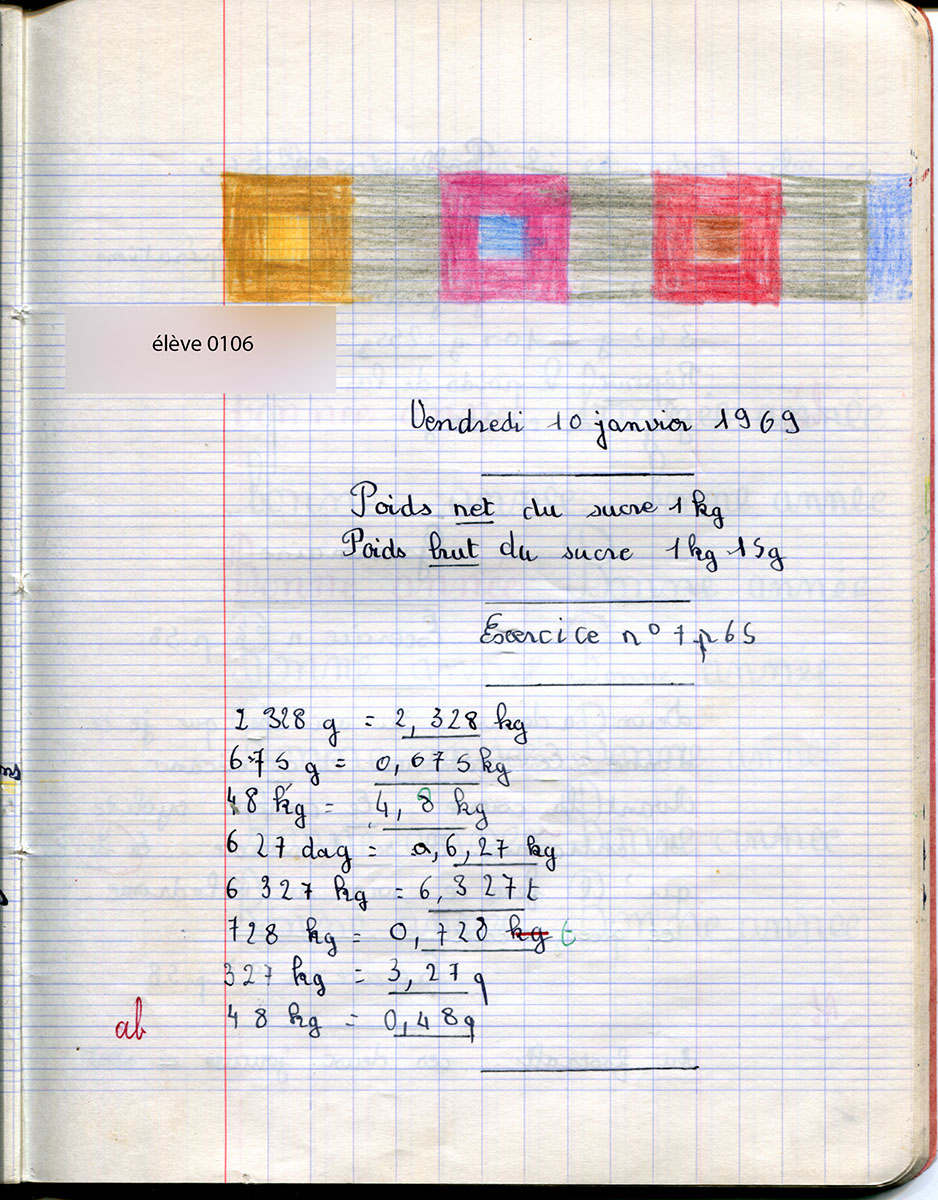 élève 0106
Vendredi 10 janvier 1969
Poids net du sucre 1 kg
Poids brut du sucre 1 kg 15 g
Exercice n° 7 p 65
2 328 g = 2,328 kg
675 g = 0,675 kg
48 kg = 4,8 kg
627 dag = 6,27 kg
6 327 kg = 6,327 t
728 kg = 0,728 kg t
327 kg = 3,27 q
ab 48 kg = 0,48 q